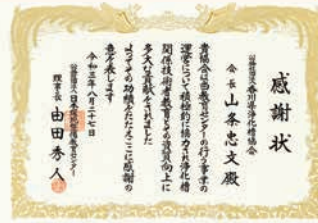 感謝状
公益社団法人香川県浄化槽協会
会長 山条忠文殿
貴協会は当教育センターの行う事業の
運営について積極的に協力され浄化槽
関係技術者教育とその資質向上に
多大な貢献をされました
よってその功績をたたえここに感謝の
意を表します
令和三年八月二十七日
公益財団法人日本環境整備教育センター
理事長 由田秀人